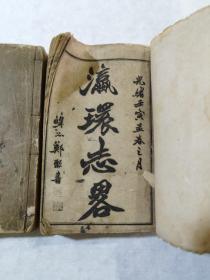 光緒壬寅孟春之月
瀛環志畧